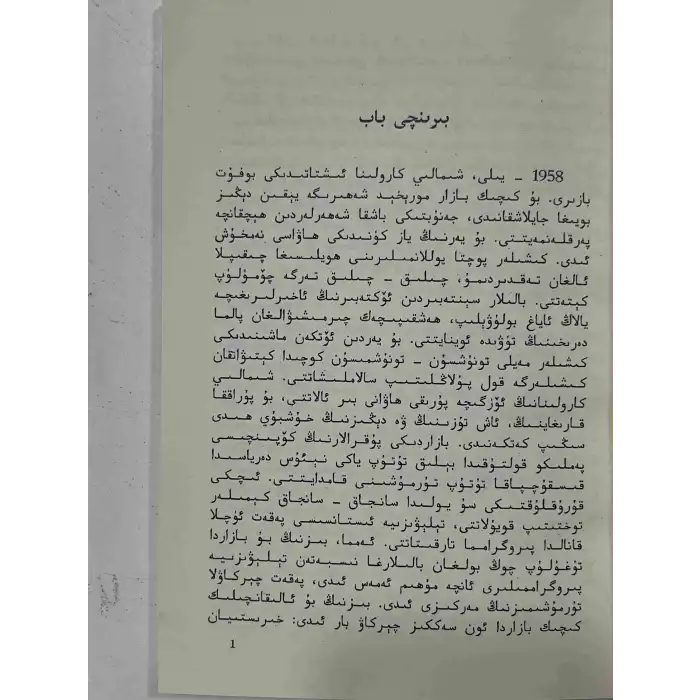 بىرىنچى باب
1958 - يىلى، شىمالىي كارولىنا ئىشتاتىدىكى بوفۇت
بازىرى. بۇ كىچىك بازار مورېخېد شەھىرىگە يېقىن دېڭىز
بويىغا جايلاشقانىدى، جەنۇبتىكى باشقا شەھەرلەردىن ھېچقانچە
پەرقلەنمەيتتى. بۇ يەرنىڭ ياز كۈنىدىكى ھاۋاسى نەمخۇش
ئىدى. كىشىلەر پوچتا يوللانمىلىرىنى ھويلىسىغا چىقىپلا
ئالغان تەقدىردىمۇ، چىلىق - چىلىق تەرگە چۆمۈلۈپ
كېتەتتى. بالىلار سېنتەبىردىن ئۆكتەبىرنىڭ ئاخىرلىرىغىچە
يالاڭ ئاياغ بولۇۋېلىپ، ھەشقىپىچەك چىرمىشىۋالغان پالما
دەرىخىنىڭ تۈۋىدە ئوينايتتى. بۇ يەردىن ئۆتكەن ماشىنىدىكى
كىشىلەر مەيلى تونۇشسۇن - تونۇشمىسۇن كوچىدا كېتىۋاتقان
كىشىلەرگە قول پۇلاڭلىتىپ سالاملىشاتتى. شىمالىي
كارولىنانىڭ ئۆزگىچە پۇرىقى ھاۋانى بىر ئالاتتى، بۇ پۇراققا
قارىغاينىڭ، ئاش تۇزىنىڭ ۋە دېڭىزنىڭ خۇشبۇي ھىدى
سىڭىپ كەتكەنىدى. بازاردىكى پۇقرالارنىڭ كۆپىنچىسى
پەملىكو قولتۇقىدا بېلىق تۇتۇپ ياكى نېئۇس دەرياسىدا
قىسقۇچپاقا تۇتۇپ تۇرمۇشىنى قامدايتتى. ئىچكى
قۇرۇقلۇقتىكى سۇ يولىدا سانجاق - سانجاق كېمىلەر
توختىتىپ قويۇلاتتى، تېلېۋىزىيە ئىستانسىسى پەقەت ئۈچلا
قانالدا پىروگرامما تارقىتاتتى. ئەمما، بىزنىڭ بۇ بازاردا
تۇغۇلۇپ چوڭ بولغان بالىلارغا نىسبەتەن تېلېۋىزىيە
پىروگراممىلىرى ئانچە مۇھىم ئەمەس ئىدى، پەقەت چېركاۋلا
تۇرمۇشىمىزنىڭ مەركىزى ئىدى. بىزنىڭ بۇ ئالىقانچىلىك
كىچىك بازاردا ئون سەككىز چېركاۋ بار ئىدى: خىرىستىيان
1